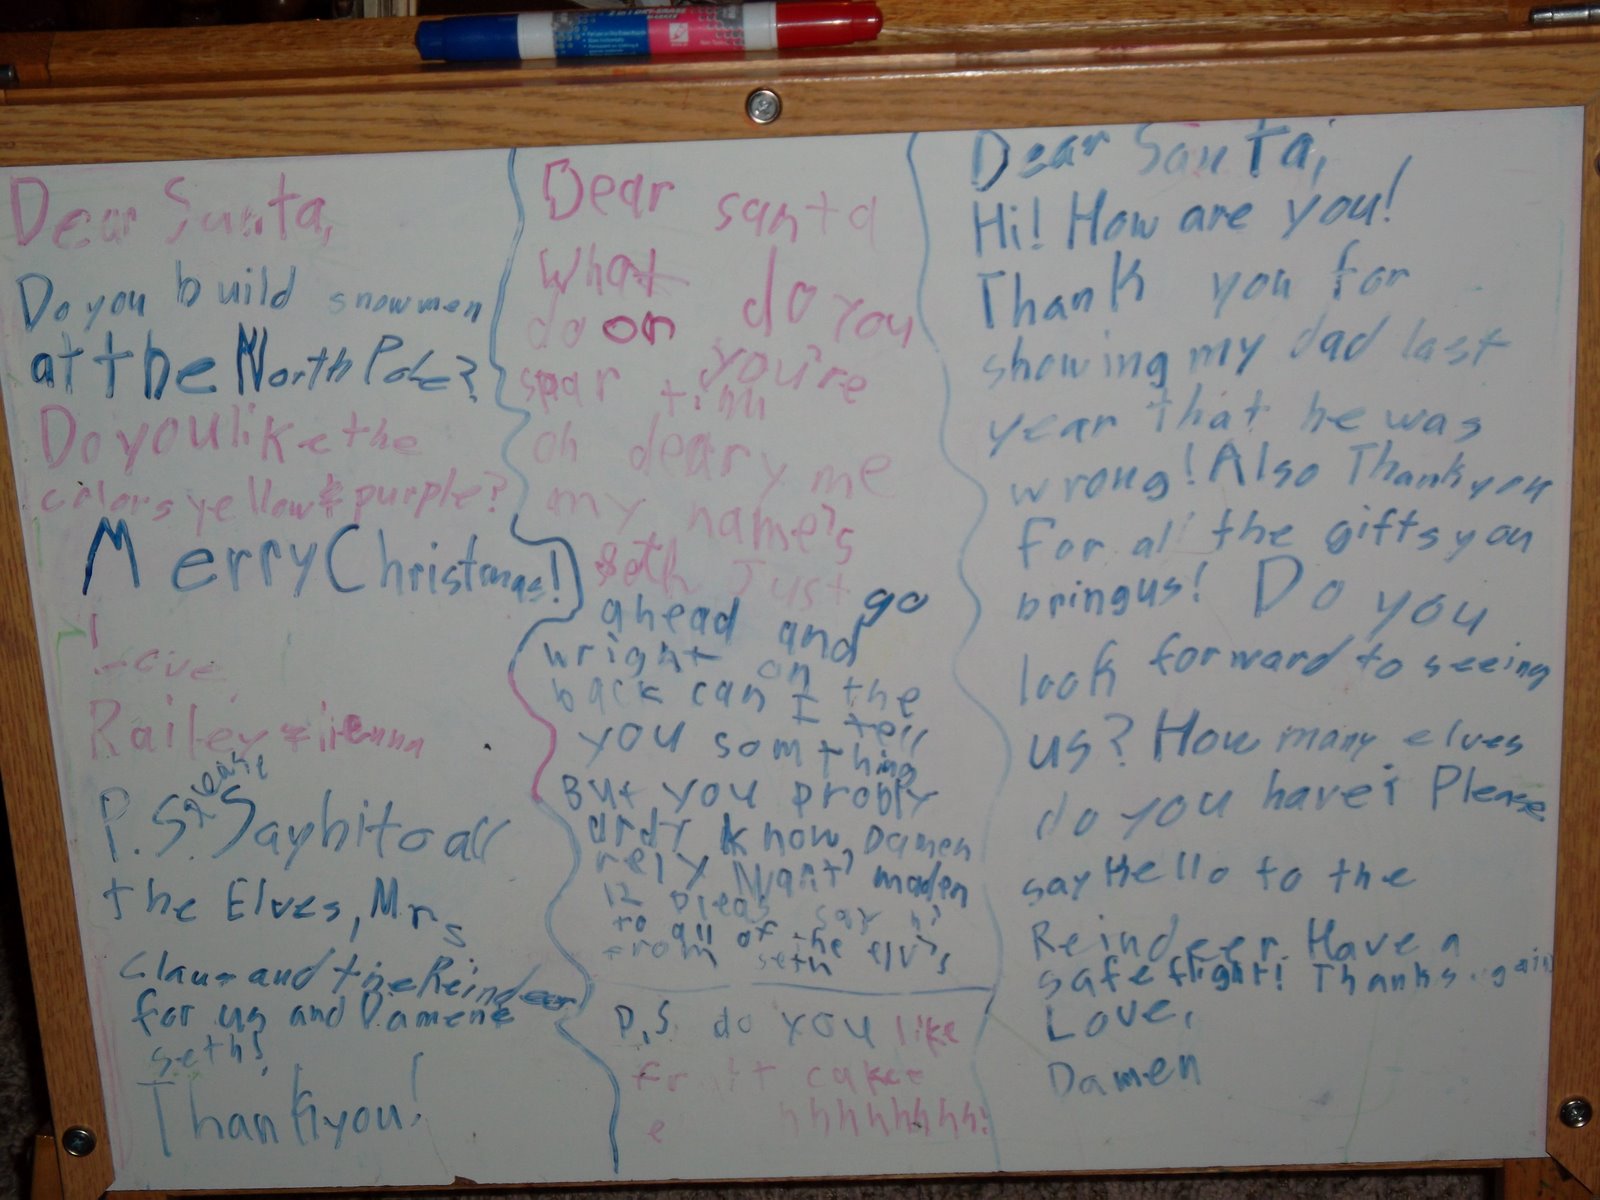 Dear Santa,
Do you build snowmen
at the North Pole?
Do you like the
colors yellow & purple?
Merry Christmas!
Love,
Railey &
P.S. please Say hi to all
the Elves, Mrs
Claus and the Reindeer
for us and Damen &
seth!
Thank you!
Dear santa
What do you
do on you're
spar tim
oh deary me
my name's
seth Just
go
ahead and
wright on
back can I the
I tell
you somthing
But you probly
ardy know, Damen
rely want maden
12 pleas say hi
to all of the elv's
from seth
P.S. do you like
fruit cake
e hhhhhhhh!
Dear Santa,
Hi! How are you!
Thank you for
showing my dad last
year that he was
wrong! Also Thank you
for all the gifts you
bring us! Do you
look forward to seeing
us? How many elves
do you have? Please
say Hello to the
Reindeer. Have a
safe flight! Thanks again
Love,
Damen